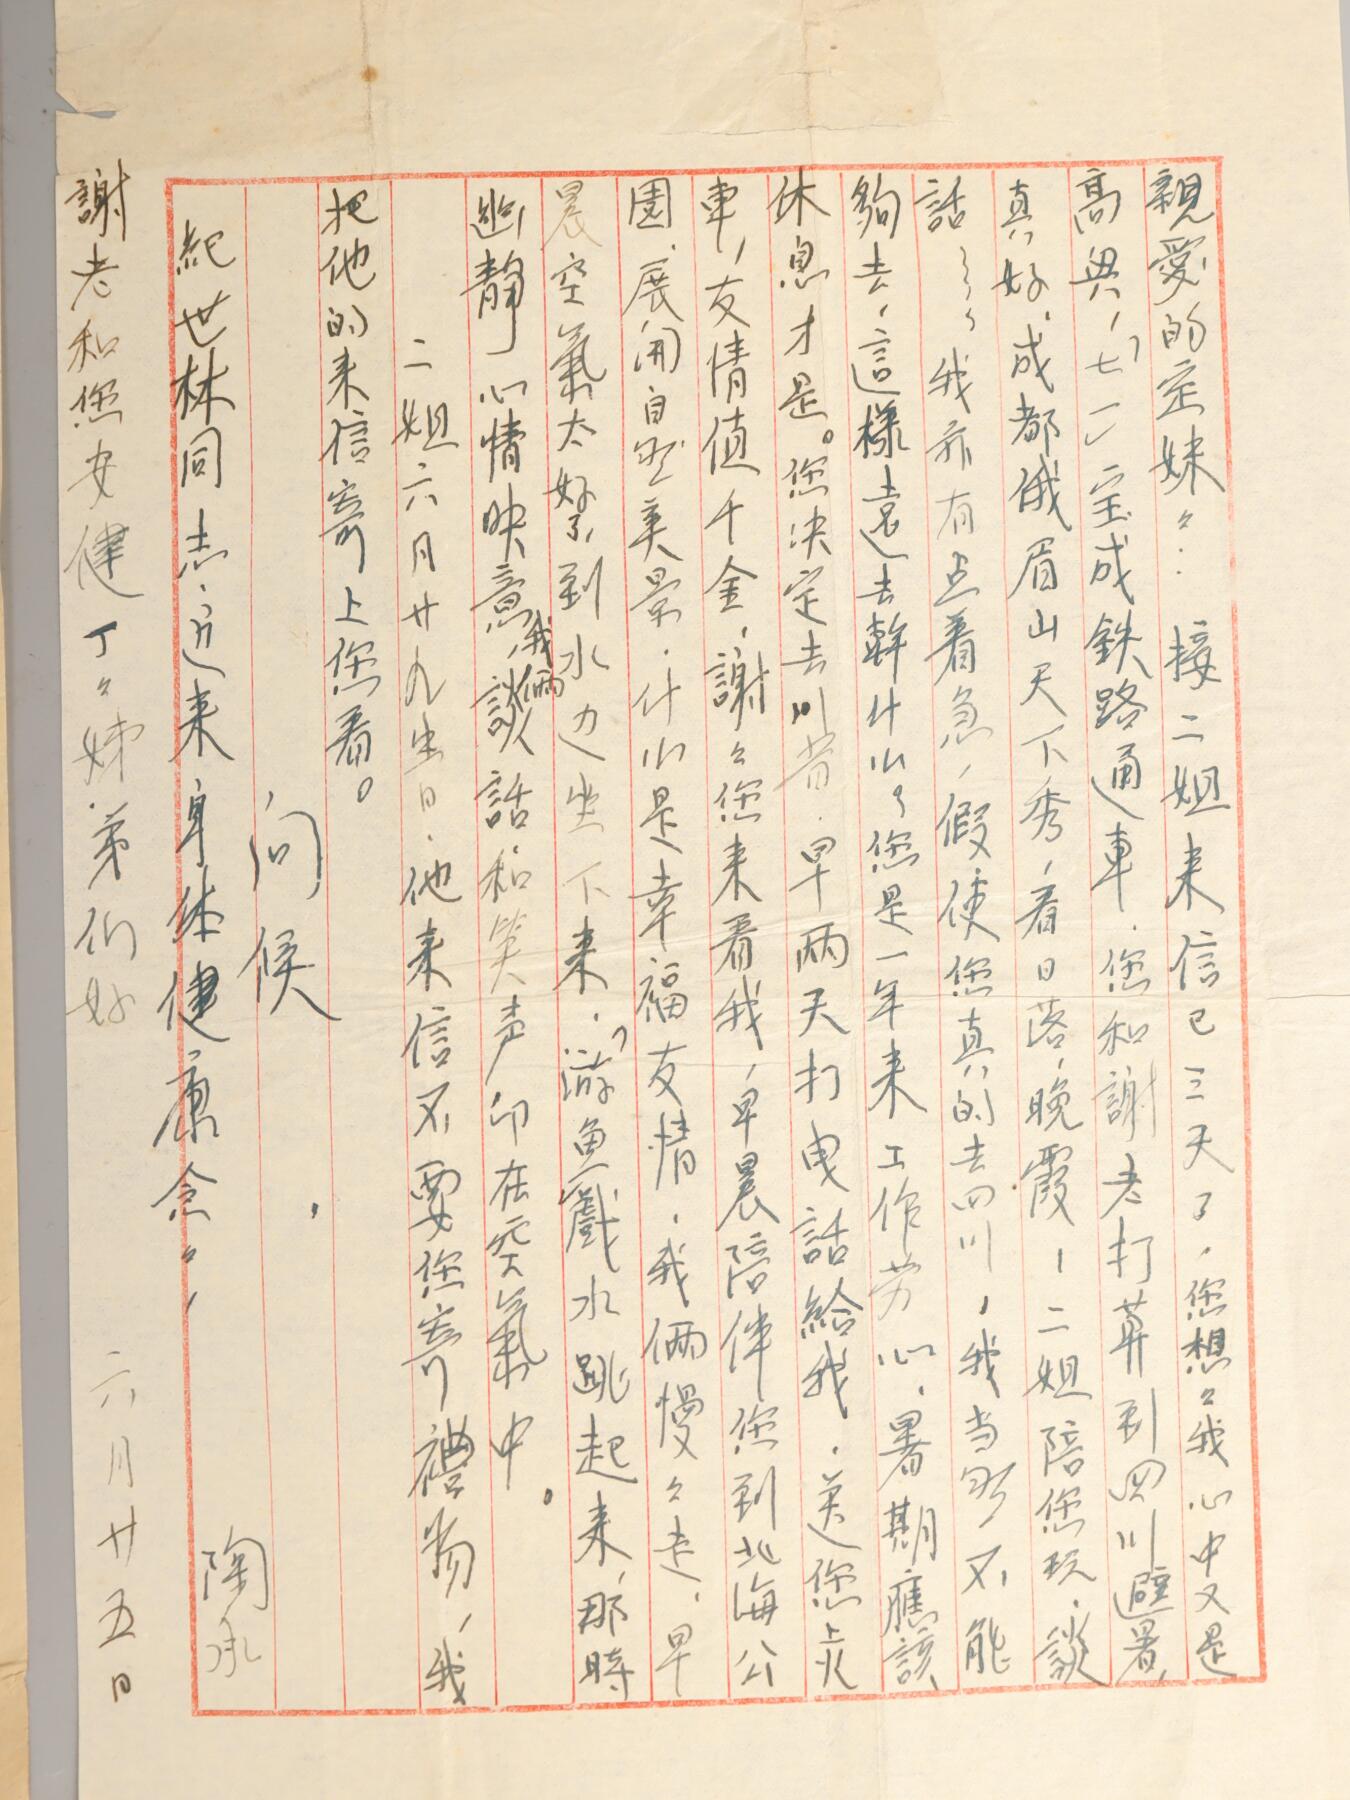 親愛的定妹々：接二姐来信已三天了，您想々我心中又是
高興，"七一"宝成鉄路通車，您和謝老打算到四川避暑，
真好，成都俄眉山天下秀，看日落，晚霞—二姐陪您玩，談
話……我亦有点着急，假使您真的去四川，我当然不能
夠去，這樣遠去幹什么，您是一年来工作劳心，暑期應該
休息才是。您决定去川省，早兩天打电話給我，送您上火
車，友情值千金，謝々您来看我，早晨陪伴您到北海公
園，展開自然美景，什么是幸福友情，我俩慢々走，早
晨空氣太好了，到水边坐下来，"游魚戲水跳起来，那時
幽静心情映意，我俩談話和笑声印在空氣中。
二姐六月廿九生日，他来信不要您寄禮物，我
把他的来信寄上您看。
问候，
紀世林同志，近来身体健康念々，
陶承
謝老和您安健 丁々姊弟们好 六月廿五日